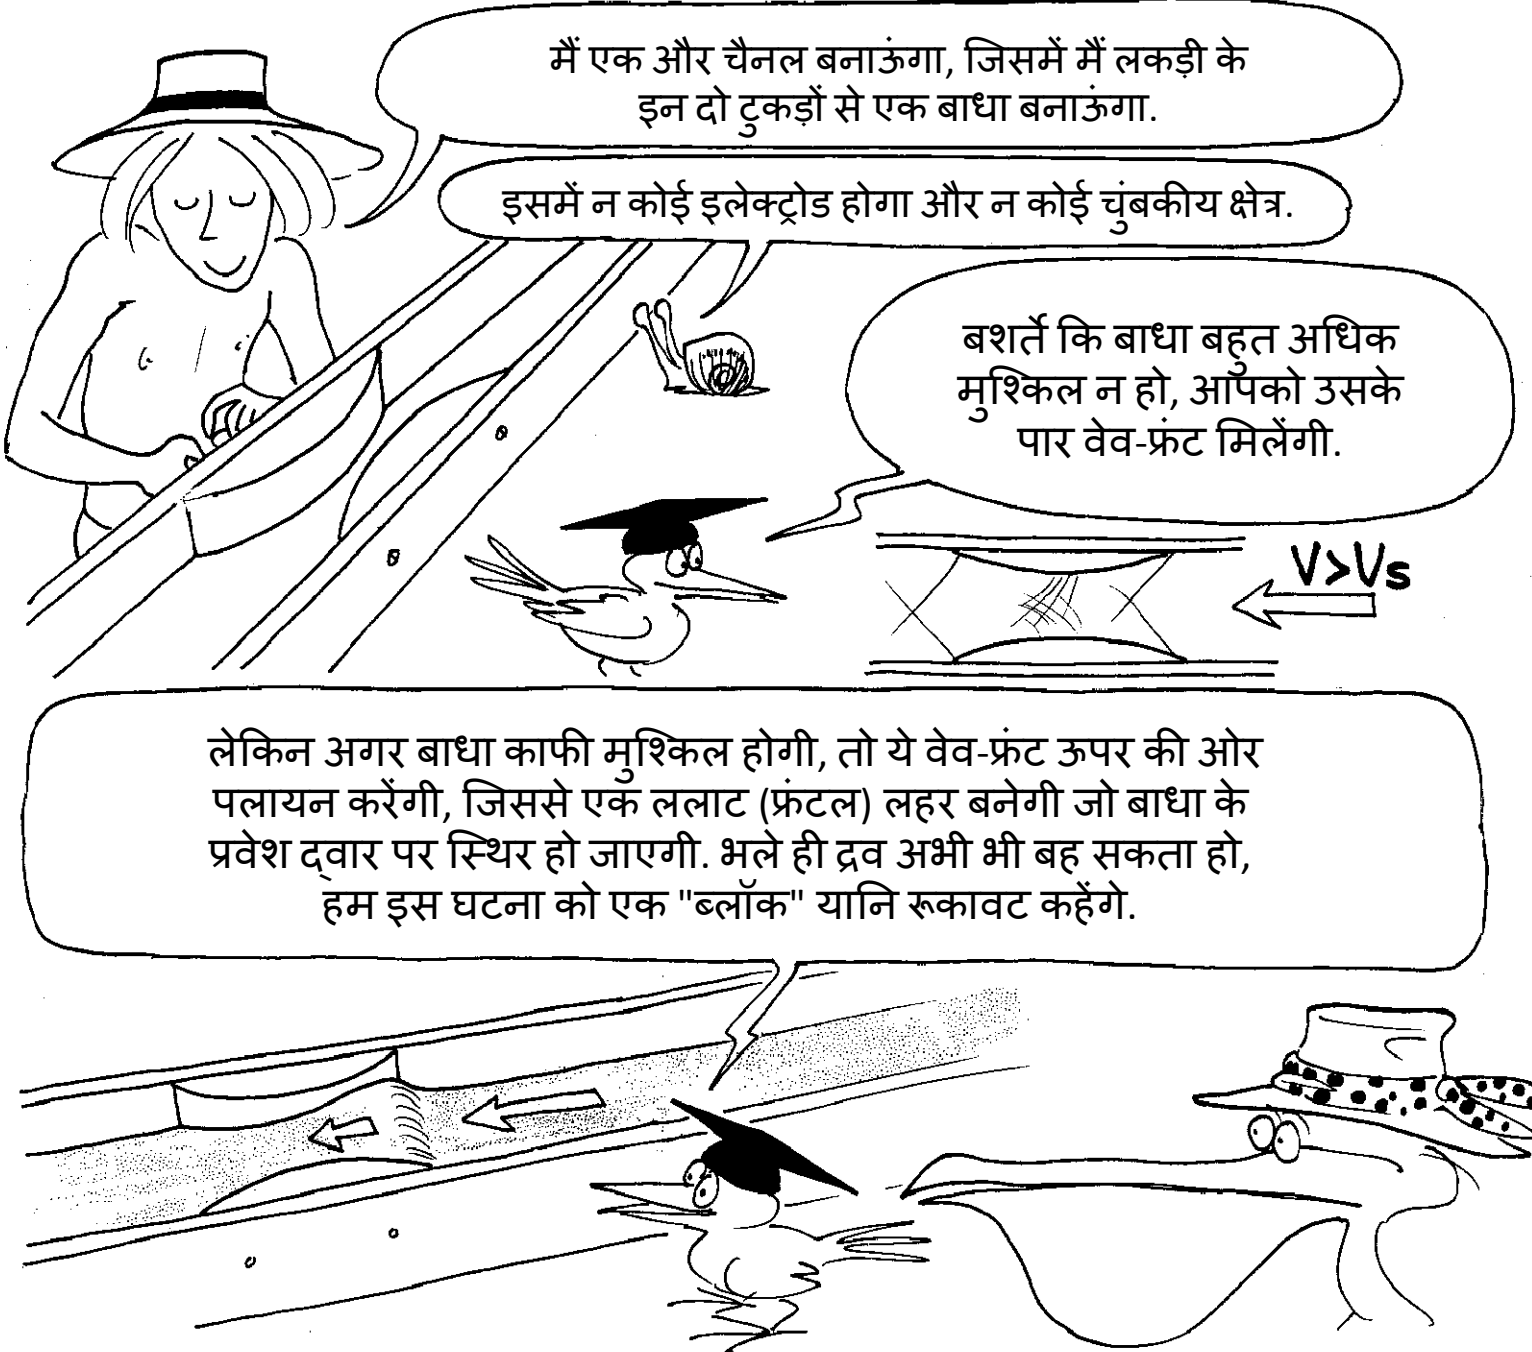 मैं एक और चैनल बनाऊंगा, जिसमें मैं लकड़ी के
इन दो टुकड़ों से एक बाधा बनाऊंगा.
इसमें न कोई इलेक्ट्रोड होगा और न कोई चुंबकीय क्षेत्र.
बशर्ते कि बाधा बहुत अधिक
मुश्किल न हो, आपको उसके
पार वेव-फ्रंट मिलेंगी.
V>Vs
लेकिन अगर बाधा काफी मुश्किल होगी, तो ये वेव-फ्रंट ऊपर की ओर
पलायन करेंगी, जिससे एक ललाट (फ्रंटल) लहर बनेगी जो बाधा के
प्रवेश द्वार पर स्थिर हो जाएगी. भले ही द्रव अभी भी बह सकता हो,
हम इस घटना को एक "ब्लॉक" यानि रूकावट कहेंगे.